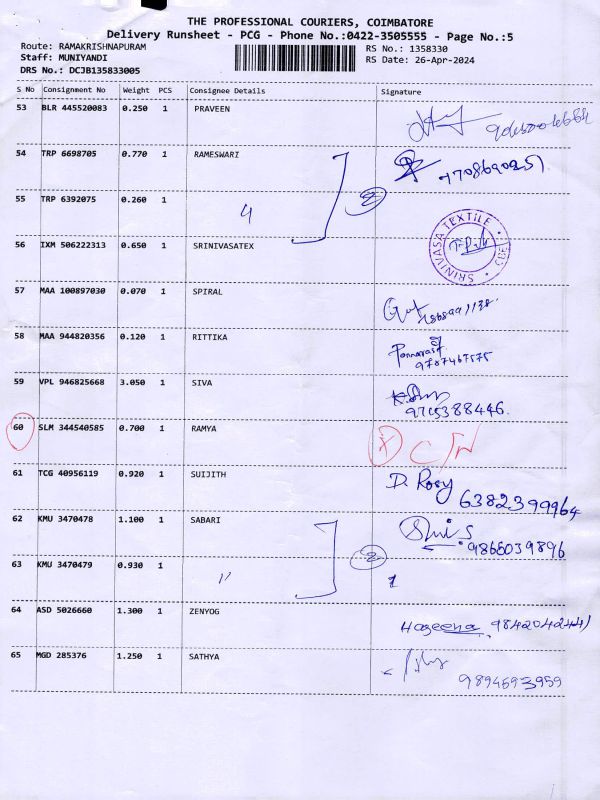 THE PROFESSIONAL COURIERS, COIMBATORE
Delivery Runsheet - PCG - Phone No.:0422-3505555 - Page No.:5
Route: RAMAKRISHNAPURAM RS No.: 1358330
Staff: MUNIYANDI RS Date: 26-Apr-2024
DRS No.: DCJB135833005
S No Consignment No Weight PCS Consignee Details Signature
53 BLR 445520083 0.250 1 PRAVEEN
54 TRP 6698705 0.770 1 RAMESWARI
55 TRP 6392075 0.260 1 4 2
56 IXM 506222313 0.650 1 SRINIVASATEX
SRINIVASA TEXTILE
57 MAA 100897030 0.070 1 SPIRAL
58 MAA 944820356 0.120 1 RITTIKA
9787467575
59 VPL 946825668 3.050 1 SIVA
9715388446.
60 SLM 344540585 0.700 1 RAMYA
61 TCG 40956119 0.920 1 SUIJITH D. Rosy 6382399964
62 KMU 3470478 1.100 1 SABARI
9865039896
63 KMU 3470479 0.930 1 " 2
64 ASD 5026660 1.300 1 ZENYOG Hageena 9842042441
65 MGD 285376 1.250 1 SATHYA
9894693959